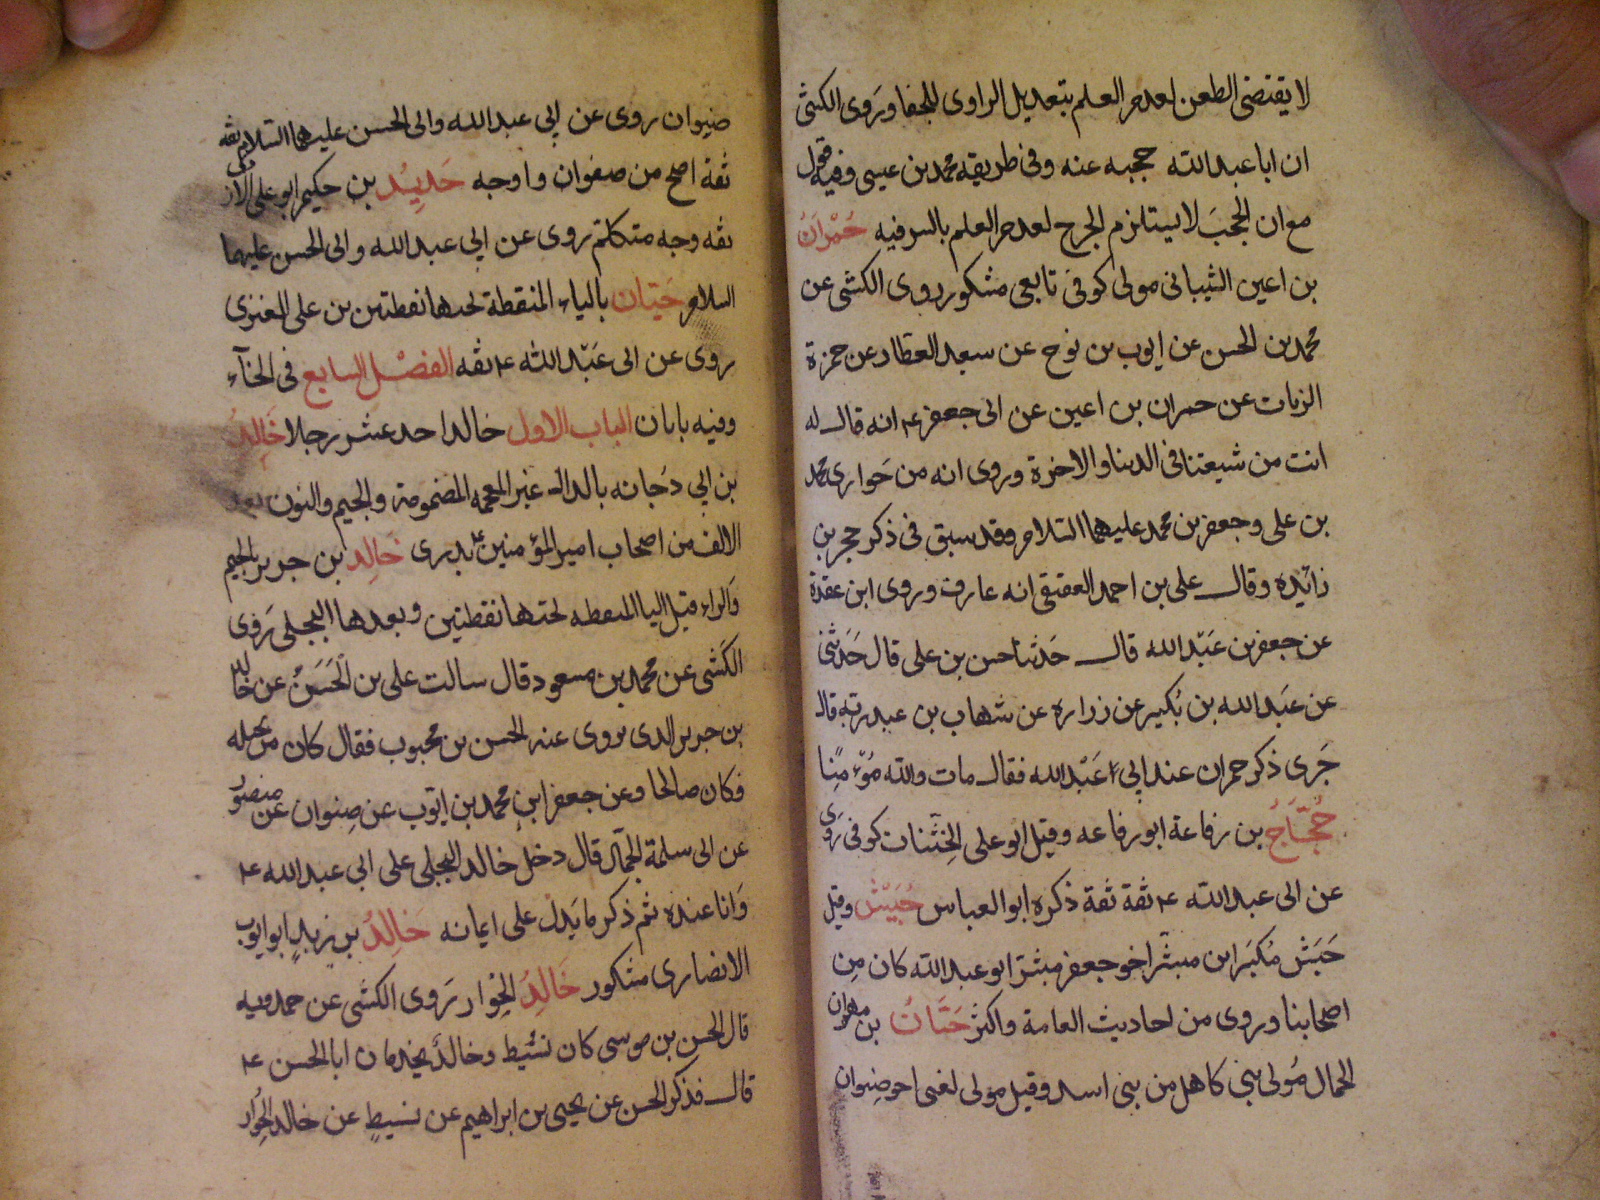 لا يقتضى الطعن لعدم العلم بتعديل الراوى للجفا وروى الكشى
ان ابا عبد الله حجبه عنه وفى طريقه محمد بن عيسى وفيه قول
مع ان الحجب لا يستلزم الجرح لعدم العلم بالسر فيه حُمْرَانُ
بن اعين الشيبانى مولى كوفى تابعى مشكور روى الكشى عن
محمد بن الحسن عن ايوب بن نوح عن سعيد العطار عن حمزة
الزيات عن حمران بن اعين عن ابى جعفر ع انه قال له
انت من شيعتنا فى الدنيا والاخرة وروى انه من حوارى محمد
بن على وجعفر بن محمد عليهما السلام وقد سبق فى ذكر حجر بن
زائده وقال على بن احمد العقيقى انه عارف وروى ابن عقدة
عن جعفر بن عبد الله قال حدثنا حسن بن على قال حدثنى
عن عبد الله بن بكير عن زراره عن شهاب بن عبد ربه قال
جرى ذكر حمران عند ابى عبد الله فقال مات والله مؤمنًا
حُجَّاجُ بن رفاعة ابو رفاعه وقيل ابو على الخشاب كوفى روى
عن ابى عبد الله ع ثقة ثقة ذكره ابو العباس حُبَيْش وقيل
حبش مكبر ابن مبشر اخو جعفر مبشر ابو عبد الله كان مِن
اصحابنا وروى من احاديث العامة واكثر حَنَّانُ بن مهران
الجمال مولى بنى كاهل من بنى اسد وقيل مولى لغنى اخو صفوان
صفوان روى عن ابى عبد الله وابى الحسن عليهما السلام ثقه
ثقة اصح من صفوان واوجه حَدِيْدُ بن حكيم ابو على الازدى
ثقه وجه متكلم روى عن ابى عبد الله وابى الحسن عليهما
السلام حَيَّان بالياء المنقطة تحتها نقطتين بن على العنزى
روى عن ابى عَبْد الله ع ثقه الفصْل السابع فى الخآء
وفيه بابان الباب الاول خالد احد عشر رجلا خَالِدُ
بن ابى دجانه بالدال غير المعجمه المضمومة والجيم والنون بعد
الالف من اصحاب امير المؤمنين ع بدرى خَالِد بن جرير بالجيم
والراء قبل اليا المنقطه تحتها نقطتين وبعدها البجلى رَوى
الكشى عن محمد بن مسعود قال سالت على بن الحَسَن عن خالد
بن جرير الذى يروى عنه الحسن بن محبوب فقال كان من بجيله
فكان صالحا وعن جعفر ابن محمد بن ايوب عن صفوان عن منصور
عن ابى سلمة الجمال قال دخل خالد البجلى على ابى عبد الله ع
وَانا عنده ثم ذكر ما يَدل على ايمانه خَالِدُ بن زيدٍ ابو ايوب
الانصارى مشكور خَالِدُ الجوار رَوى الكشى عن حمدويه
قال الحسن بن موسى كان نشيط وخالد يخدمان ابا الحسن ع
قال فذكر الحسن عن يحيى بن ابراهيم عن نشيطٍ عن خالد الجُوار